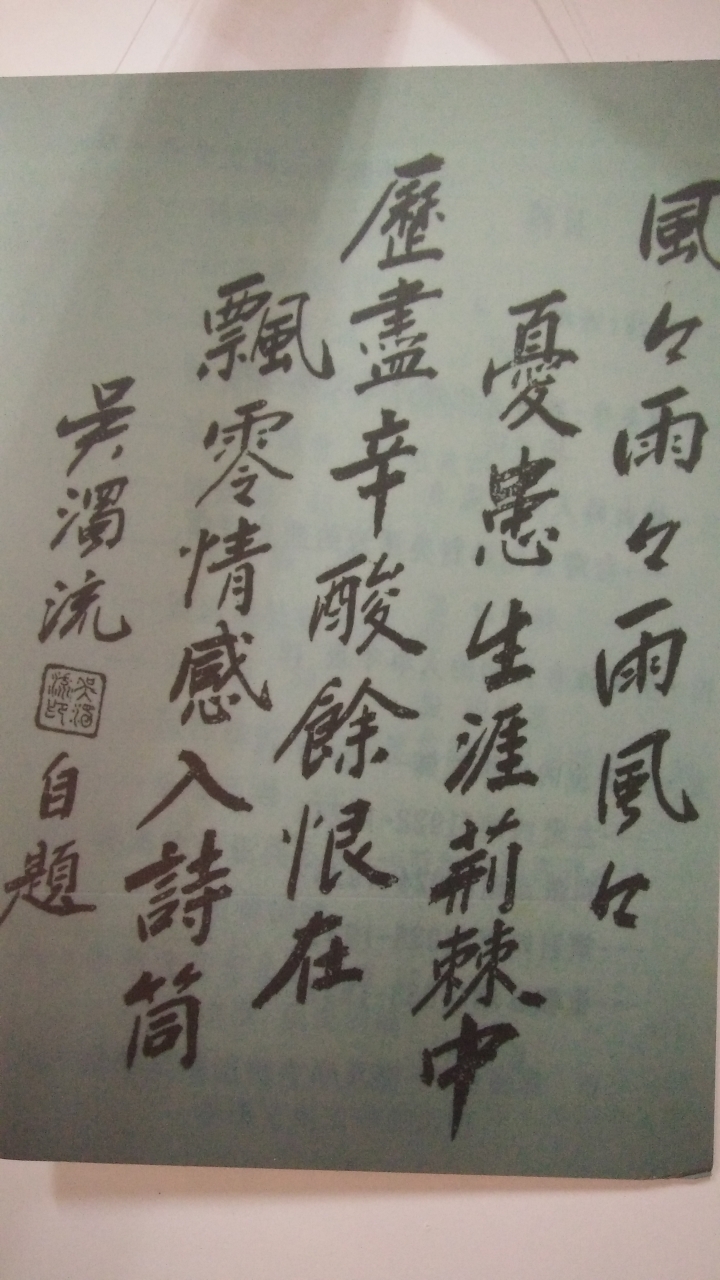 風々雨々雨風々
憂患生涯荊棘中
歷盡辛酸餘恨在
飄零情感入詩筒
吳濁流
吳濁流印
自題